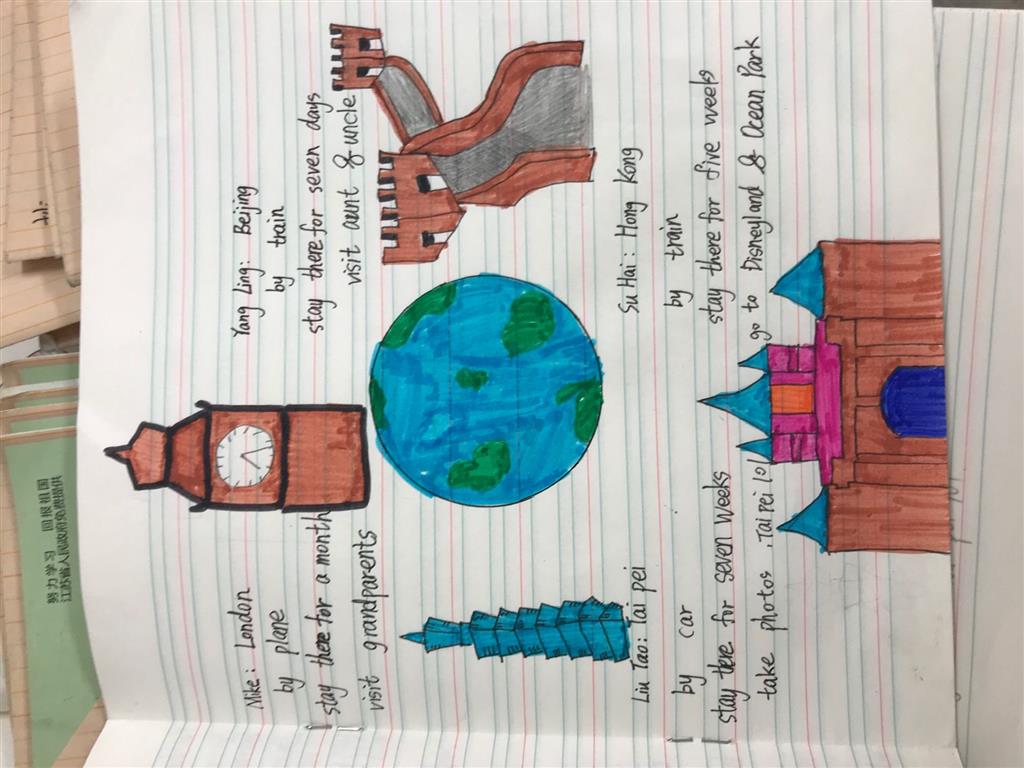 Mike: London
by plane
stay there for a month
visit grandparents
Yang Ling: Beijing
by train
stay there for seven days
visit aunt & uncle
Liu Tao: Tai pei
by car
stay there for seven weeks
take photos, Tai pei 101
Su Hai: Hong Kong
by train
stay there for five weeks
go to Disneyland & Ocean Park
努力学习 回报祖国
江苏省人民政府免费提供